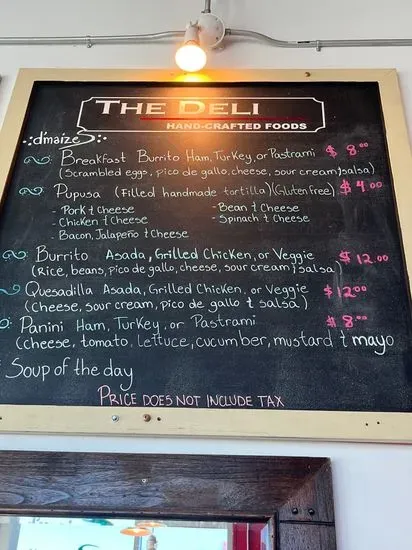 THE DELI
HAND-CRAFTED FOODS
.:d'maíze:.
Breakfast Burrito Ham, Turkey, or Pastrami $ 8.00
(Scrambled eggs, pico de gallo, cheese, sour cream, salsa)
Pupusa (Filled handmade tortilla)(Gluten free) $ 4.00
- Pork & Cheese - Bean & Cheese
- Chicken & Cheese - Spinach & Cheese
- Bacon, Jalapeño & Cheese
Burrito Asada, Grilled Chicken, or Veggie $ 12.00
(Rice, beans, pico de gallo, cheese, sour cream, salsa)
Quesadilla Asada, Grilled Chicken, or Veggie $12.00
(Cheese, sour cream, pico de gallo & salsa)
Panini Ham, Turkey, or Pastrami $ 8.00
(Cheese, tomato, lettuce, cucumber, mustard & mayo
Soup of the day
PRICE DOES NOT INCLUDE TAX